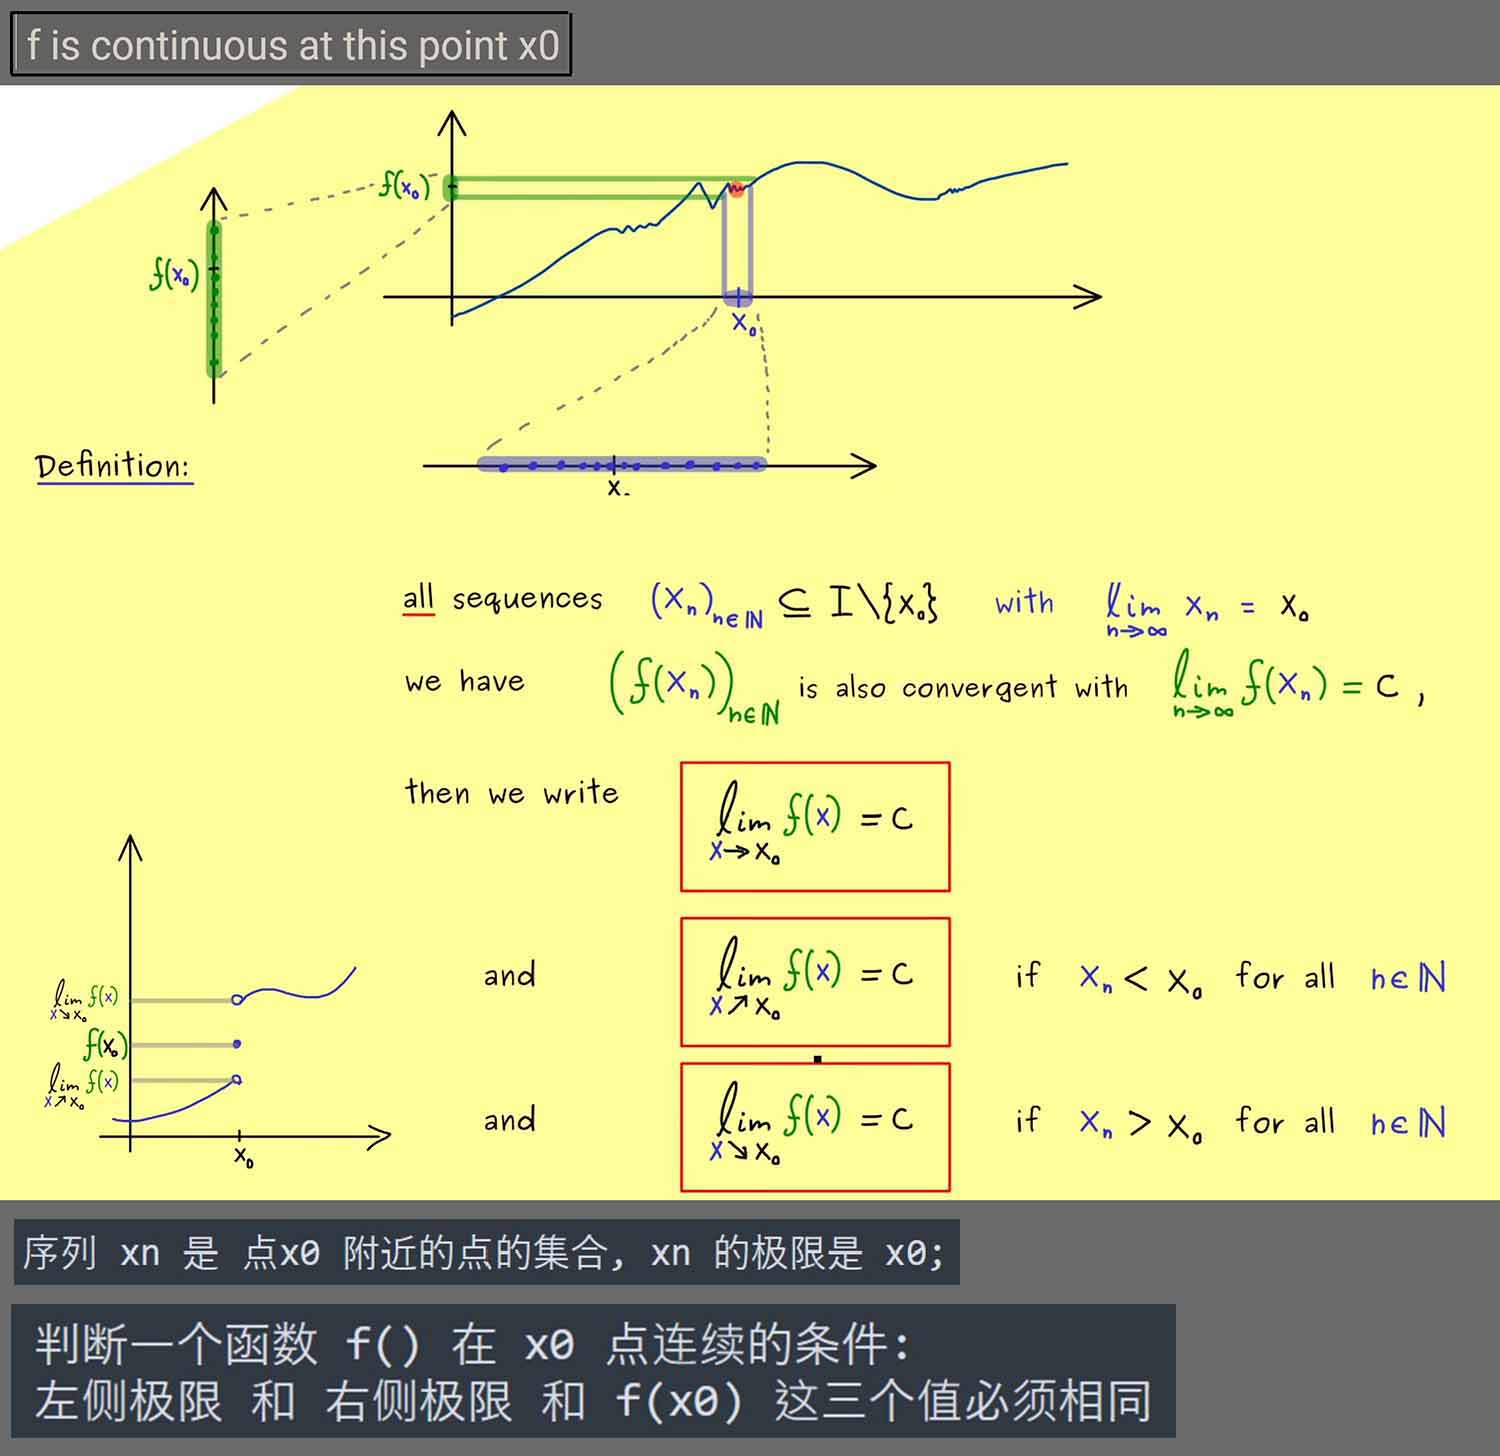 f is continuous at this point x0
f(x₀)
f(x₀)
x₀
x.
Definition:
all sequences (xₙ)ₙ∈ℕ ⊆ I\{x₀} with lim n→∞ xₙ = x₀
we have (f(xₙ))ₙ∈ℕ is also convergent with lim n→∞ f(xₙ) = c ,
then we write lim x→x₀ f(x) = c
and lim x↗x₀ f(x) = c if xₙ < x₀ for all n∈ℕ
and lim x↘x₀ f(x) = c if xₙ > x₀ for all n∈ℕ
lim x↘x₀ f(x)
f(x₀)
lim x↗x₀ f(x)
x₀
序列 xn 是 点x0 附近的点的集合, xn 的极限是 x0;
判断一个函数 f() 在 x0 点连续的条件:
左侧极限 和 右侧极限 和 f(x0) 这三个值必须相同